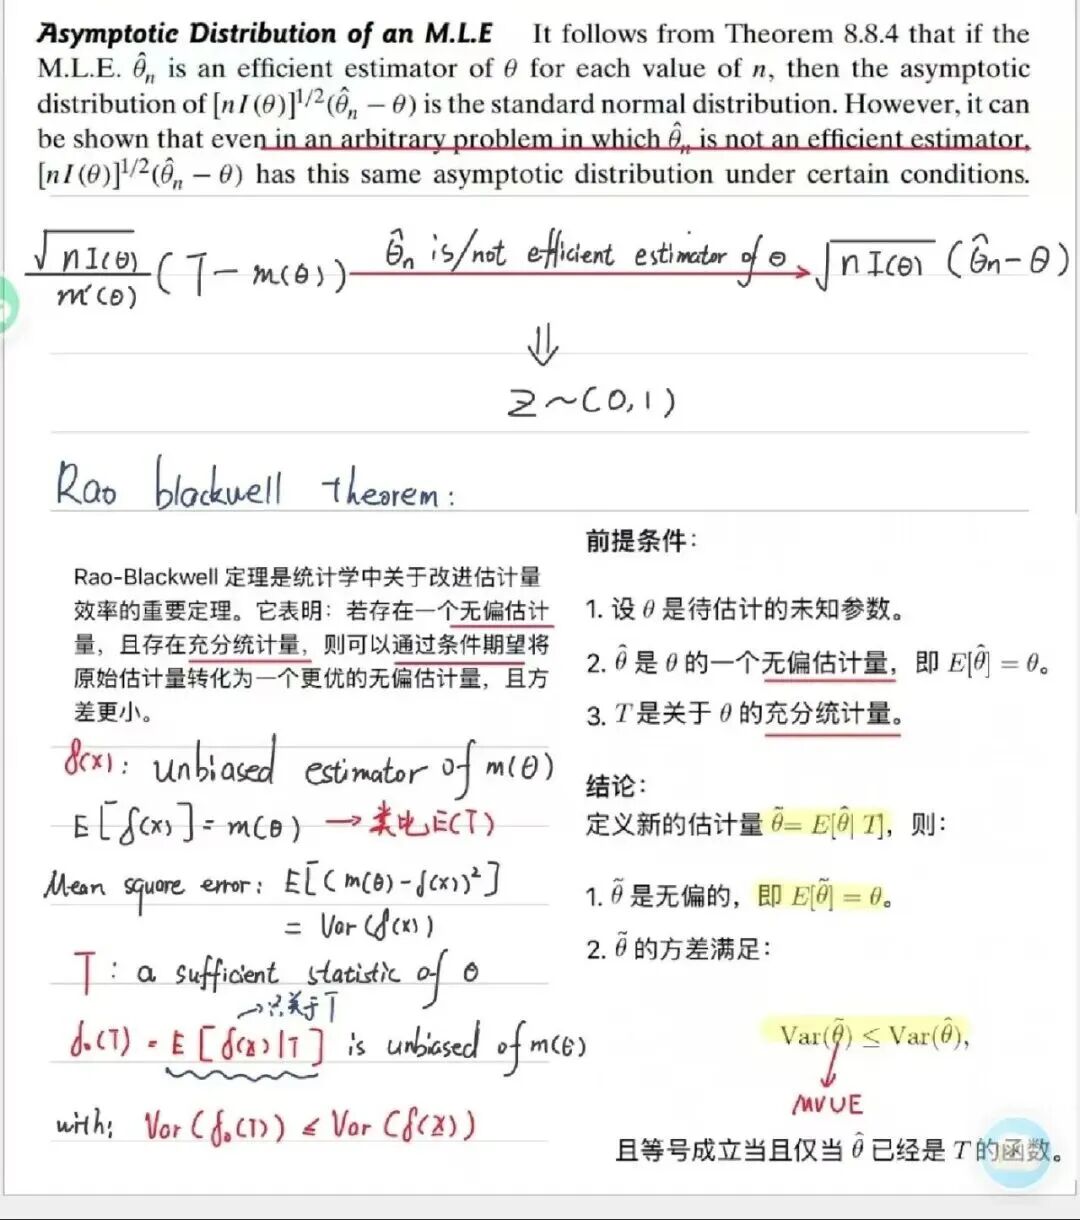 Asymptotic Distribution of an M.L.E It follows from Theorem 8.8.4 that if the
M.L.E. θ̂ₙ is an efficient estimator of θ for each value of n, then the asymptotic
distribution of [nI(θ)]^{1/2}(θ̂ₙ − θ) is the standard normal distribution. However, it can
be shown that even in an arbitrary problem in which θ̂ₙ is not an efficient estimator,
[nI(θ)]^{1/2}(θ̂ₙ − θ) has this same asymptotic distribution under certain conditions.
√nI(θ) / m'(θ) (T − m(θ)) θ̂n is/not efficient estimator of θ → √nI(θ) (θ̂n − θ)
⇓
Z ~ (0,1)
Rao blackwell theorem:
Rao-Blackwell 定理是统计学中关于改进估计量
效率的重要定理。它表明：若存在一个无偏估计
量，且存在充分统计量，则可以通过条件期望将
原始估计量转化为一个更优的无偏估计量，且方
差更小。
δ(x): unbiased estimator of m(θ)
E[δ(x)] = m(θ) → 类比E(T)
Mean square error: E[(m(θ) − δ(x))²]
= Var(δ(x))
T: a sufficient statistic of θ
→只关于T
δ₀(T) = E[δ(x)|T] is unbiased of m(θ)
with: Var(δ₀(T)) ≤ Var(δ(X))
前提条件：
1. 设 θ 是待估计的未知参数。
2. θ̂ 是 θ 的一个无偏估计量，即 E[θ̂] = θ。
3. T 是关于 θ 的充分统计量。
结论：
定义新的估计量 θ̃ = E[θ̂| T]，则：
1. θ̃ 是无偏的，即 E[θ̃] = θ。
2. θ̃ 的方差满足：
Var(θ̃) ≤ Var(θ̂),
MVUE
且等号成立当且仅当 θ̂ 已经是 T 的函数。